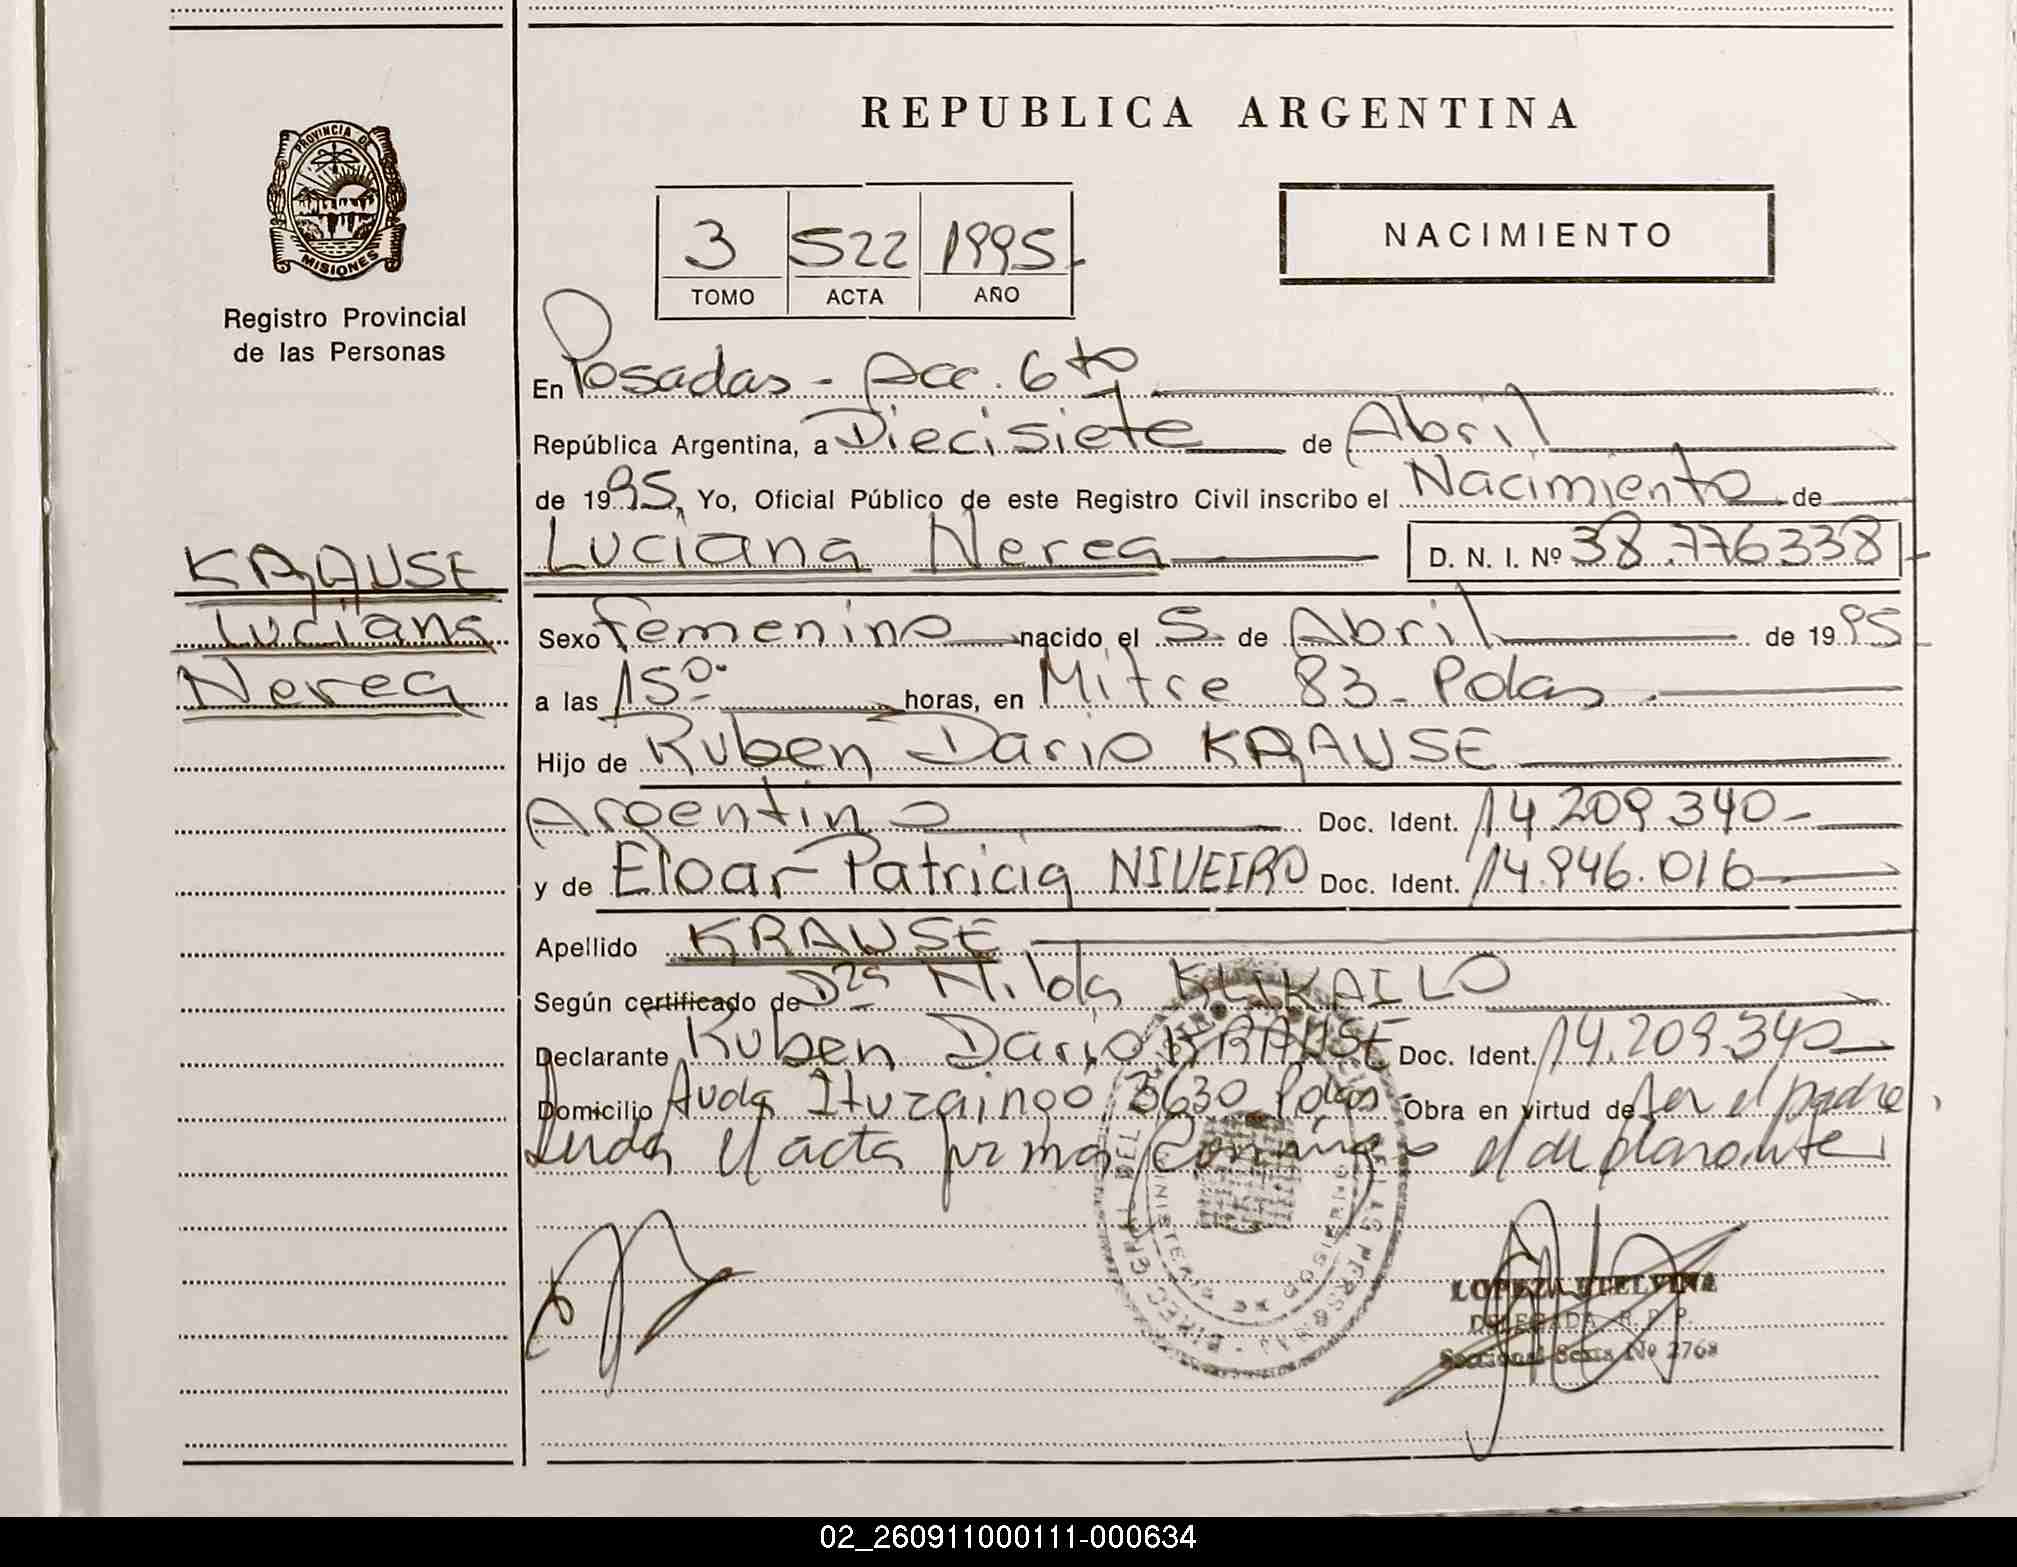 REPUBLICA ARGENTINA
PROVINCIA DE
MISIONES
Registro Provincial
de las Personas
3 522 1995
TOMO ACTA AÑO
NACIMIENTO
En Posadas - Acc. 6to
República Argentina, a Diecisiete de Abril
de 1995, Yo, Oficial Público de este Registro Civil inscribo el Nacimiento de
Luciana Nerea D. N. I. Nº 38.776338
KRAUSE
Luciana
Nerea
Sexo femenino nacido el 5 de Abril de 1995
a las 15º horas, en Mitre 83 - Pdas.
Hijo de Ruben Dario KRAUSE
Argentino Doc. Ident. 14.209.340-
y de Eloar Patricia NIVEIRO Doc. Ident. 14.946.016
Apellido KRAUSE
Según certificado de Dra Nilda KLIKAILO
Declarante Ruben Dario KRAUSE Doc. Ident. 14.209.340
Domicilio Avda Ituzaingo 3630 Pdas- Obra en virtud de ser el padre,
Leida el acta firma conmigo el declarante
LOPEZ A. ETELVINA
DELEGADA R. P. P.
Seccional Sexta Nº 2768
02_260911000111-000634